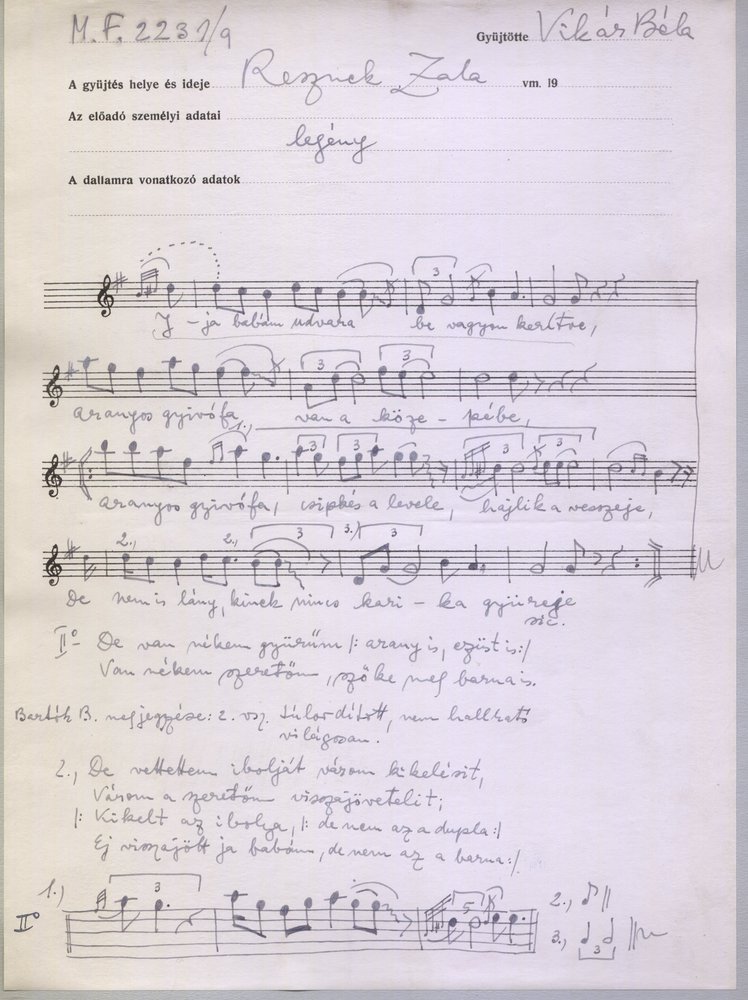 M.F. 2232/a
Gyüjtötte Vikár Béla
A gyüjtés helye és ideje Resznek Zala vm. 19
Az előadó személyi adatai
legény
A dallamra vonatkozó adatok
3
I-ja babám udvara be vagyon kerítve,
3 3
aranyos gyivófa, van a köze-pébe,
1.,
3 3 3 3
aranyos gyivófa, csipkés a levele, hajlik a vesszeje,
2., 2., 3 3., 3
De nem is lány, kinek nincs kari-ka gyüreje
sic.
II° De van nékem gyürüm |: arany is, ezüst is :|
Van nékem szeretöm, szöke meg barna is.
Bartók B. megjegyzése: 2. vsz. túlordított, nem hallható
világosan.
2., De vettettem ibolját várom kikelésit,
Várom a szeretöm visszajövetelit;
|: Kikelt az ibolya, |: de nem az a dupla :|
Ej visszajött ja babám, de nem az a barna :|
1.,
3
5
2.,
II°
3.,
3